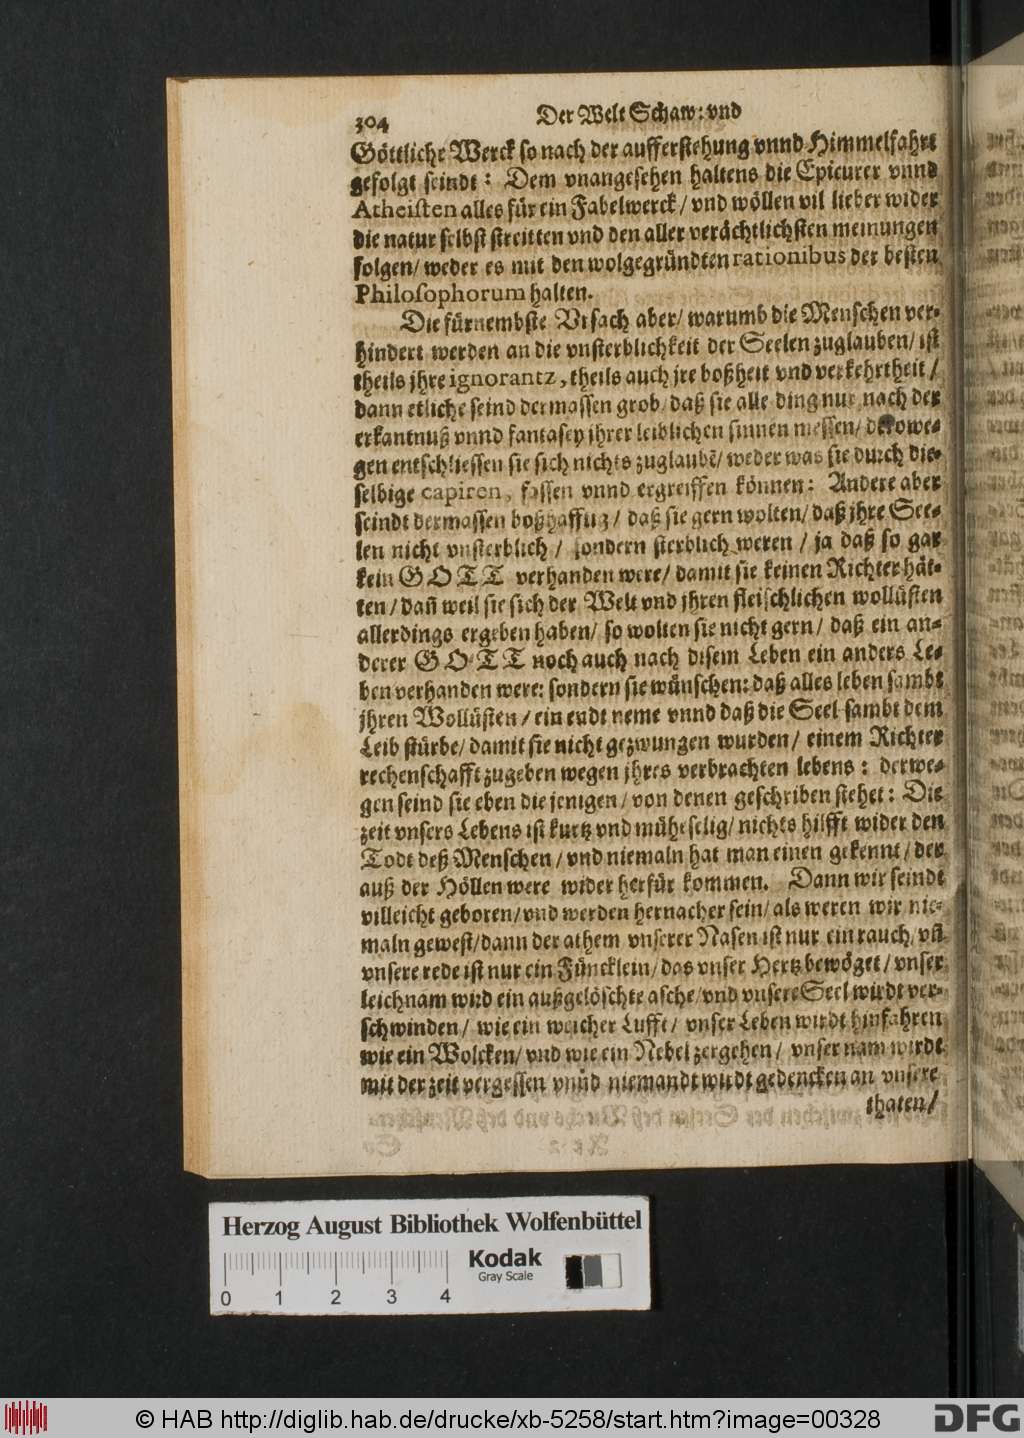 304 Der Welt Schaw: vnd
Göttliche Werck so nach der aufferstehung vnnd Himmelfahrt
gefolgt seindt: Dem vnangesehen haltens die Epicurer vnnd
Atheisten alles für ein Fabelwerck/ vnd wöllen vil lieber wider
die natur selbst streitten vnd den aller verächtlichsten meinungen
folgen/ weder es mit den wolgegründten rationibus der besten
Philosophorum halten.
Die fürnembste Vrsach aber/ warumb die Menschen ver-
hindert werden an die vnsterblichkeit der Seelen zuglauben/ ist
theils jhre ignorantz, theils auch jre boßheit vnd verkehrtheit/
dann etliche seind dermassen grob/ daß sie alle ding nur nach der
erkantnuß vnnd fantasey jhrer leiblichen sinnen messen/ derowe-
gen entschliessen sie sich nichts zuglaubē/ weder was sie durch die-
selbige capiren, fassen vnnd ergreiffen können: Andere aber
seindt dermassen boßhafftig/ daß sie gern wolten/ daß jhre See-
len nicht vnsterblich/ sondern sterblich weren/ ja daß so gar
kein GOTT verhanden were/ damit sie keinen Richter hät-
ten/ dañ weil sie sich der Welt vnd jhren fleischlichen wollüsten
allerdings ergeben haben/ so wolten sie nicht gern/ daß ein an-
derer GOTT noch auch nach disem Leben ein anders Le-
ben verhanden were: sondern sie wünschen: daß alles leben sambt
jhren Wollüsten/ ein endt neme vnnd daß die Seel sambt dem
Leib stürbe/ damit sie nicht gezwungen wurden/ einem Richter
rechenschafft zugeben wegen jhres verbrachten lebens: derwe-
gen seind sie eben die jenigen/ von denen geschriben stehet: Die
zeit vnsers Lebens ist kurtz vnd müheselig/ nichts hilfft wider den
Todt deß Menschen/ vnd niemaln hat man einen gekennt/ der
auß der Höllen were wider herfür kommen. Dann wir seindt
villeicht geboren/ vnd werden hernacher sein/ als weren wir nie-
maln gewest/ dann der athem vnserer Nasen ist nur ein rauch/ vñ
vnsere rede ist nur ein Füncklein/ das vnser Hertz bewöget/ vnser
leichnam wird ein außgelöschte asche/ vnd vnsere Seel wirdt ver-
schwinden/ wie ein weicher Lufft/ vnser Leben wirdt hinfahren
wie ein Wolcken/ vnd wie ein Nebel zergehen/ vnser nam wirdt
mit der zeit vergessen vnnd niemandt wirdt gedencken an vnsere
thaten/
Herzog August Bibliothek Wolfenbüttel
Kodak
Gray Scale
0 1 2 3 4
© HAB http://diglib.hab.de/drucke/xb-5258/start.htm?image=00328
DFG